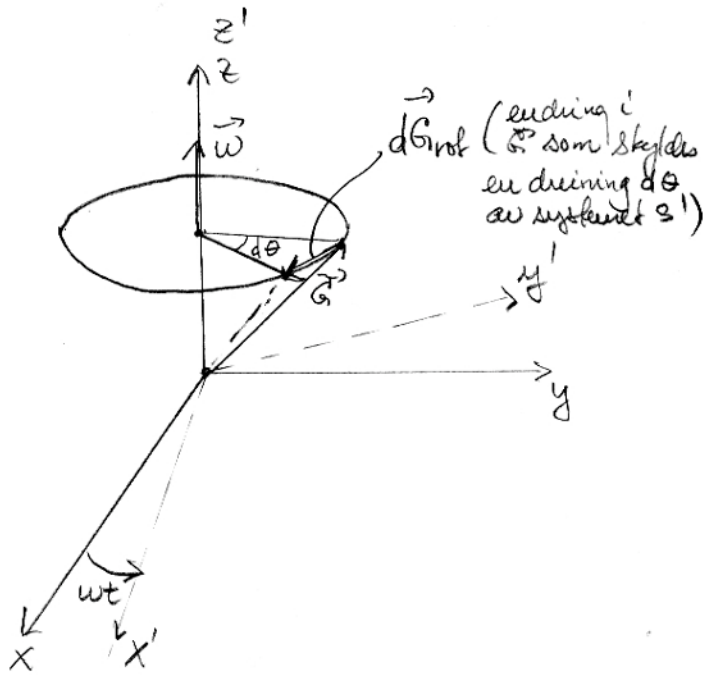 z'
z
w⃗
dG⃗rot (endring i
G⃗ som skyldes
en dreining dθ
av systemet S')
dθ
G⃗
y'
y
wt
x
x'